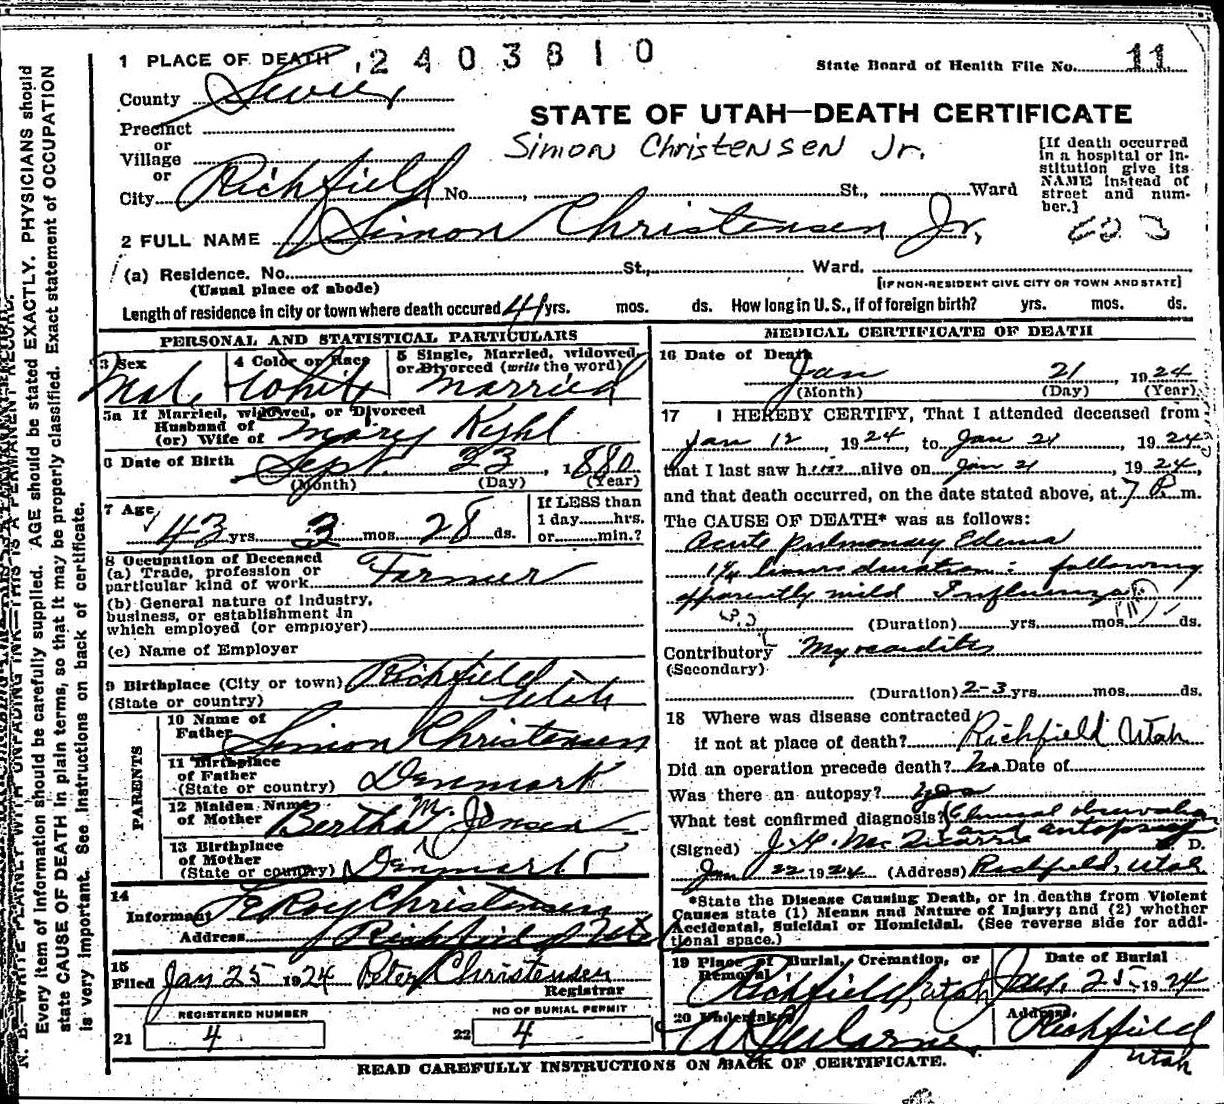 1 PLACE OF DEATH 2403810
State Board of Health File No. 11
County Sevier
STATE OF UTAH—DEATH CERTIFICATE
Precinct
or
Village
or
Simon Christensen Jr.
[If death occurred in a hospital or institution give its NAME instead of street and number.]
City Richfield No. St., Ward
2 FULL NAME Simon Christensen Jr,
(a) Residence. No. St., Ward.
(Usual place of abode)
[IF NON-RESIDENT GIVE CITY OR TOWN AND STATE]
Length of residence in city or town where death occured 41 yrs. mos. ds. How long in U.S., if of foreign birth? yrs. mos. ds.
PERSONAL AND STATISTICAL PARTICULARS
3 Sex
4 Color or Race
5 Single, Married, widowed, or Divorced (write the word)
Male White Married
5a If Married, widowed, or Divorced
Husband of
(or) Wife of Mary Kyhl
6 Date of Birth Sept 23, 1880
(Month) (Day) (Year)
7 Age 43 yrs. 3 mos. 28 ds.
If LESS than
1 day hrs.
or min.?
8 Occupation of Deceased
(a) Trade, profession or
particular kind of work Farmer
(b) General nature of Industry,
business, or establishment in
which employed (or employer)
(c) Name of Employer
9 Birthplace (City or town) Richfield
(State or country) Utah
PARENTS
10 Name of
Father Simon Christensen
11 Birthplace
of Father
(State or country) Denmark
12 Maiden Name
of Mother Bertha M. Jensen
13 Birthplace
of Mother
(State or country) Denmark
14
Informant LeRoy Christensen
Address Richfield Utah
15
Filed Jan 25 1924 Peter Christensen
Registrar
REGISTERED NUMBER
21 4
NO OF BURIAL PERMIT
22 4
MEDICAL CERTIFICATE OF DEATH
16 Date of Death
Jan 21 1924
(Month) (Day) (Year)
17 I HEREBY CERTIFY, That I attended deceased from
Jan 12, 1924, to Jan 21, 1924
that I last saw him alive on Jan 21, 1924,
and that death occurred, on the date stated above, at 7 P. m.
The CAUSE OF DEATH* was as follows:
Acute pulmonary Edema
hours duration: following
apparently mild Influenza
(Duration) yrs. mos. ds.
Contributory Myocarditis
(Secondary)
(Duration) 2-3 yrs. mos. ds.
18 Where was disease contracted
if not at place of death? Richfield Utah
Did an operation precede death? No Date of
Was there an autopsy? yes
What test confirmed diagnosis? Clinical
and autopsy
(Signed) D.
Jan 22 1924 (Address) Richfield, Utah
*State the Disease Causing Death, or in deaths from Violent
Causes state (1) Means and Nature of Injury; and (2) whether
Accidental, Suicidal or Homicidal. (See reverse side for addi-
tional space.)
19 Place of Burial, Cremation, or
Removal
Richfield, Utah
Date of Burial
Jan. 25 1924
20 Undertaker
Address
Richfield
Utah
READ CAREFULLY INSTRUCTIONS ON BACK OF CERTIFICATE.
N. B.—WRITE PLAINLY WITH UNFADING INK—THIS IS A PERMANENT RECORD.
Every item of information should be carefully supplied. AGE should be stated EXACTLY. PHYSICIANS should
state CAUSE OF DEATH in plain terms, so that it may be properly classified. Exact statement of OCCUPATION
is very important. See instructions on back of certificate.